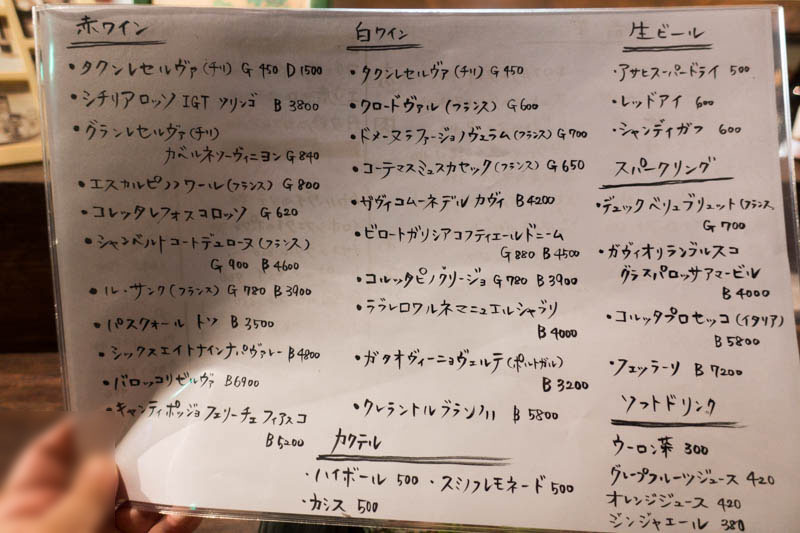 赤ワイン
・タクンレセルヴァ(チリ) G 450 D 1500
・シチリアロッソ IGT ソリンゴ B 3800
・グランレセルヴァ(チリ)
カベルネソーヴィニヨン G 840
・エスカルピノノワール(フランス) G 800
・コレッタレフォスコロッソ G 620
・シャンベルトコートデュローヌ(フランス)
G 900 B 4600
・ル・サンク(フランス) G 780 B 3900
・パスクォール ドソ B 3500
・シックスエイトナインナパヴァレー B 4800
・バロッコリゼルヴァ B 6900
・キャンティポッジョ フェリーチェ フィアスコ
B 5200
白ワイン
・タクンレセルヴァ(チリ) G 450
・クロードヴァル(フランス) G 600
・ドメーヌラファージョノヴェラム(フランス) G 700
・コーテマスミュスカセック(フランス) G 650
・ガヴィコムーネデル ガヴィ B 4200
・ピロートガリシアコフティエールドニーム
G 880 B 4500
・コルッタピノグリージョ G 780 B 3900
・ラブレロワルネマニュエルシャブリ
B 4000
・ガタオヴィーニョヴェルテ(ポルトガル)
B 3200
・クレラントルブラン B 5800
カクテル
・ハイボール 500 ・スミノフレモネード 500
・カシス 500
生ビール
・アサヒスーパードライ 500
・レッドアイ 600
・シャンディガフ 600
スパークリング
・デュックベリュブリュット(フランス
G 700
・ガヴィオリランブルスコ
グラスパロッサアマービル
B 4000
・コルッタプロセッコ(イタリア)
B 5800
・フェッラーリ B 7200
ソフトドリンク
ウーロン茶 300
グレープフルーツジュース 420
オレンジジュース 420
ジンジャエール 380